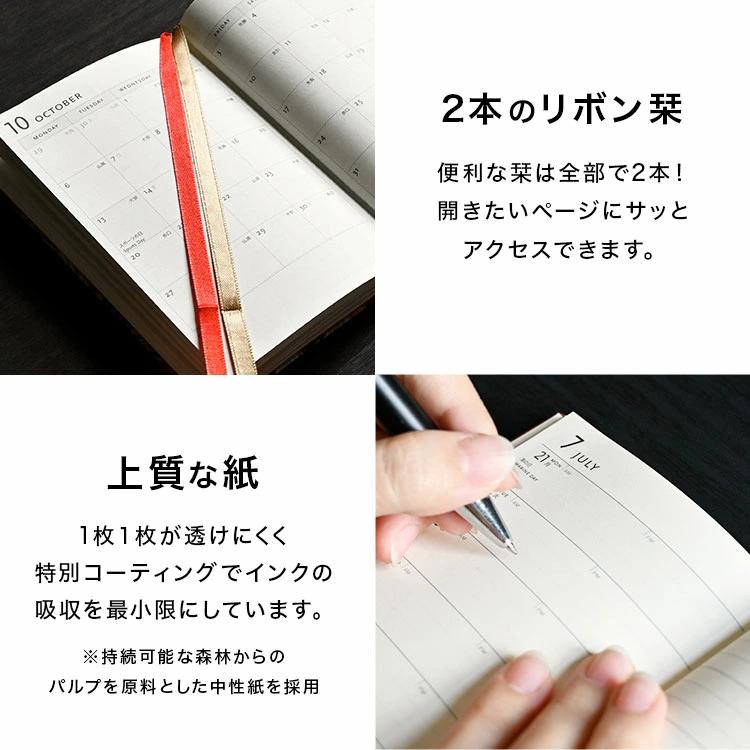 10 OCTOBER
MONDAY TUESDAY WEDNESDAY
6 7
13 14
スポーツの日
Sports Day
20
27
FRIDAY
31
2本のリボン栞
便利な栞は全部で2本！
開きたいページにサッと
アクセスできます。
上質な紙
1枚1枚が透けにくく
特別コーティングでインクの
吸収を最小限にしています。
※持続可能な森林からの
パルプを原料とした中性紙を採用
7 JULY
21 MON
月
海の日
MARINE DAY